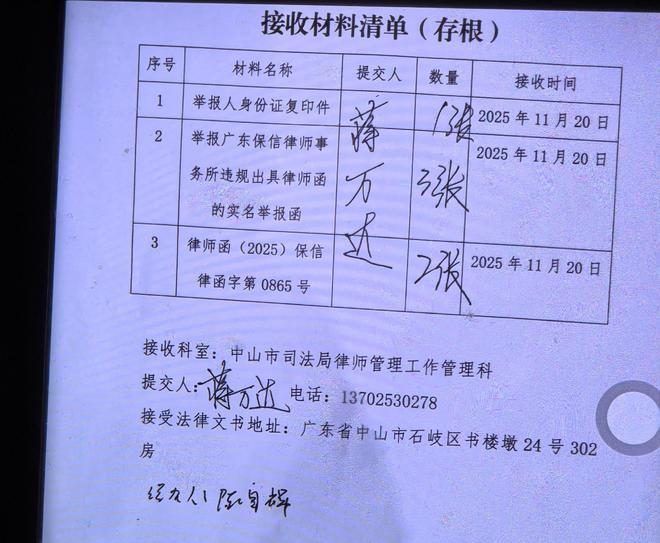 接收材料清单（存根）
序号 材料名称 提交人 数量 接收时间
1 举报人身份证复印件 蒋万达 1张 2025年11月20日
2 举报广东保信律师事 3张 2025年11月20日
务所违规出具律师函
的实名举报函
3 律师函（2025）保信 2张 2025年11月20日
律函字第0865号
接收科室：中山市司法局律师管理工作管理科
提交人：蒋万达 电话：13702530278
接受法律文书地址：广东省中山市石岐区书楼墩24号302
房
经办人：陈自辉